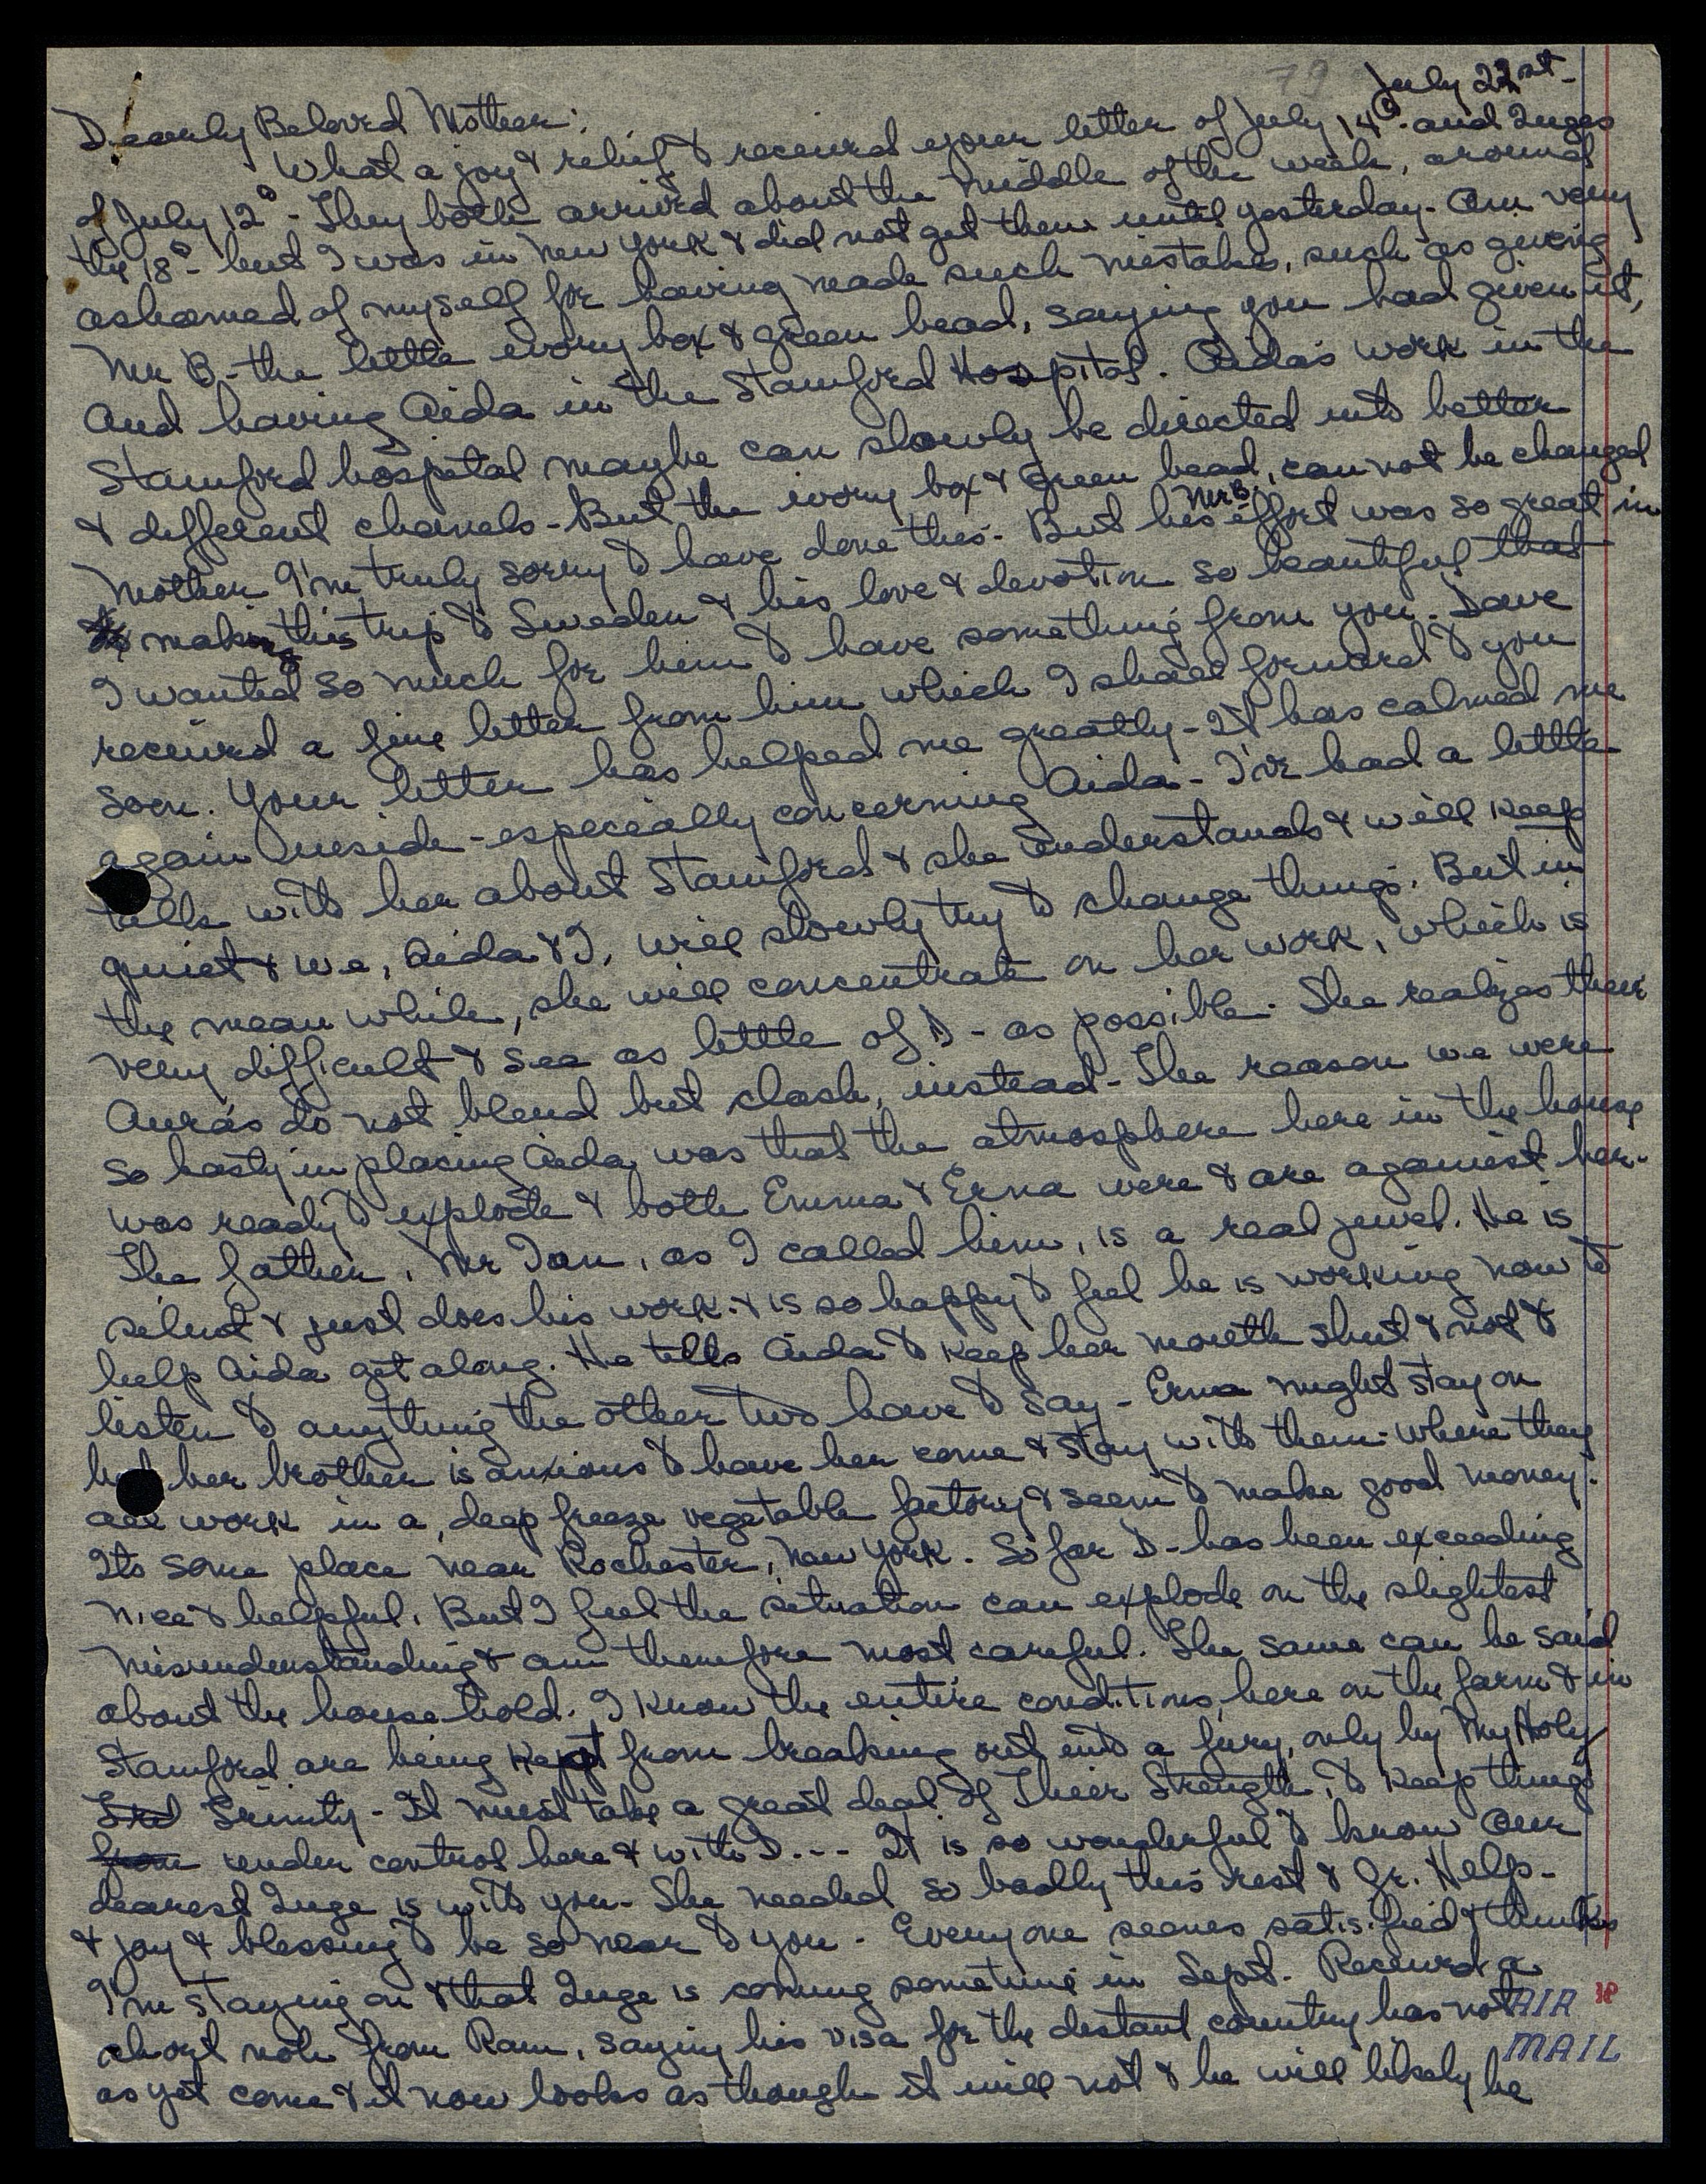 79
July 22nt-
Dearly Beloved Mother:
What a joy & relief to received your letter of July 14th and Inges
of July 12th - They both arrived about the middle of the week, around
the 18th - but I was in New York & did not get them until yesterday. Am very
ashamed of myself for having made such mistakes, such as giving
Mr B - the little ivory box & green bead, saying you had given it,
And having Aida in the Stamford Hospital. Aida's work in the
Stamford hospital maybe can slowly be directed into better
& different chanels - But the ivory box & green bead, can not be changed
Mother I'm truly sorry to have done this - But his Mr B. effort was so great in
making this trip to Sweden & his love & devotion so beautiful that
I wanted so much for him to have something from you. Dave
received a fine letter from him which I shall forward to you
soon. Your letter has helped me greatly - It has calmed me
again inside - especially concerning Aida - I've had a little
talk with her about Stamford & she understands & will keep
quiet & we, Aida & I, will slowly try to change things. But in
the mean while, she will concentrate on her work, which is
very difficult & see as little of D - as possible. She realizes their
Aura's do not blend but clash, instead - The reason we were
so hasty in placing Aida, was that the atmosphere here in the house
was ready to explode & both Emma & Erna were & are against her.
The father, Mr Tan, as I called him, is a real jewel. He is
silent & just does his work & is so happy to feel he is working now to
help Aida get along. He tells Aida to keep her mouth shut & not to
listen to anything the other two have to say - Erna might stay on
but her brother is anxious to have her come & stay with them - where they
all work in a, deep freeze vegetable factory & seem to make good money.
Its some place near Rochester, New York. So far D - has been exceeding
nice & helpful. But I feel the situation can explode on the slightest
misunderstanding & am therefore most careful. The same can be said
about the house hold. I know the entire conditions, here on the farm & in
Stamford are being kept from breaking out into a fury, only by My Holy
Trinity - It must take a great deal of Their Strength, to keep things
from under control here & with D... It is so wonderful to know Our
dearest Inge is with you - She needed so badly this rest & Gr. Help -
& joy & blessing to be so near to you - Everyone seems satisfied & thinks
I'm staying on & that Inge is coming sometime in Sept. Received a
short note from Ram, saying his visa for the distant country has not
as yet come & it now looks as though it will not & he will likely be
AIR
MAIL